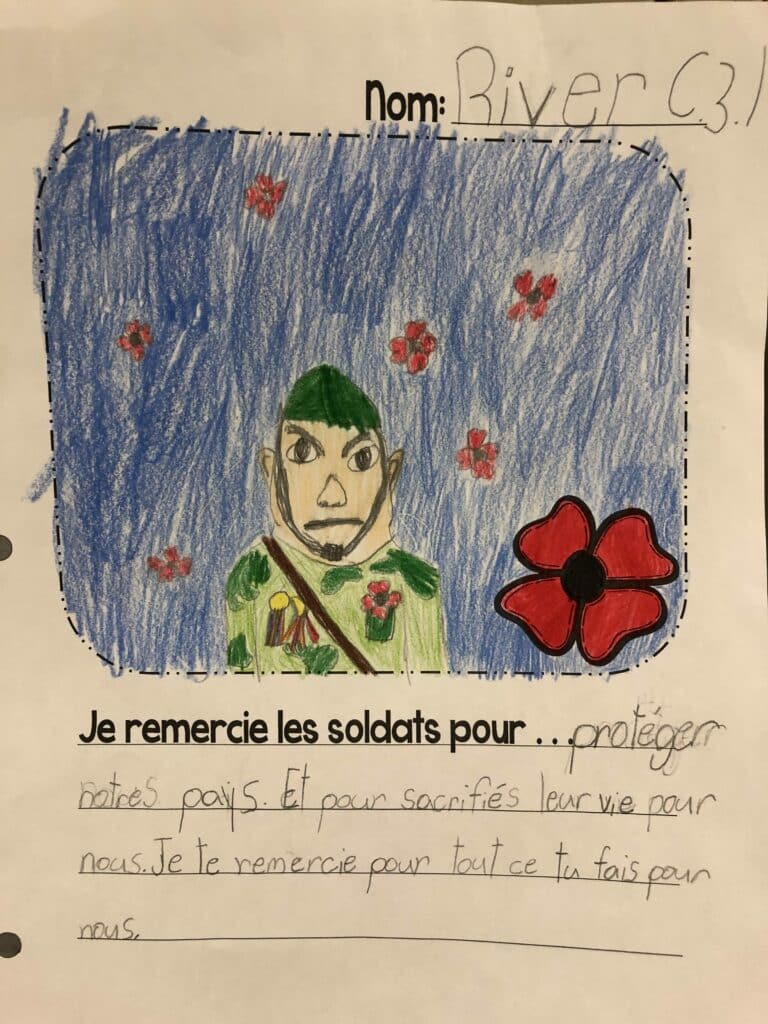 Nom: River C.3.1
Je remercie les soldats pour ... protéger
notres pays. Et pour sacrifiés leur vie pour
nous. Je te remercie pour tout ce tu fais pour
nous.